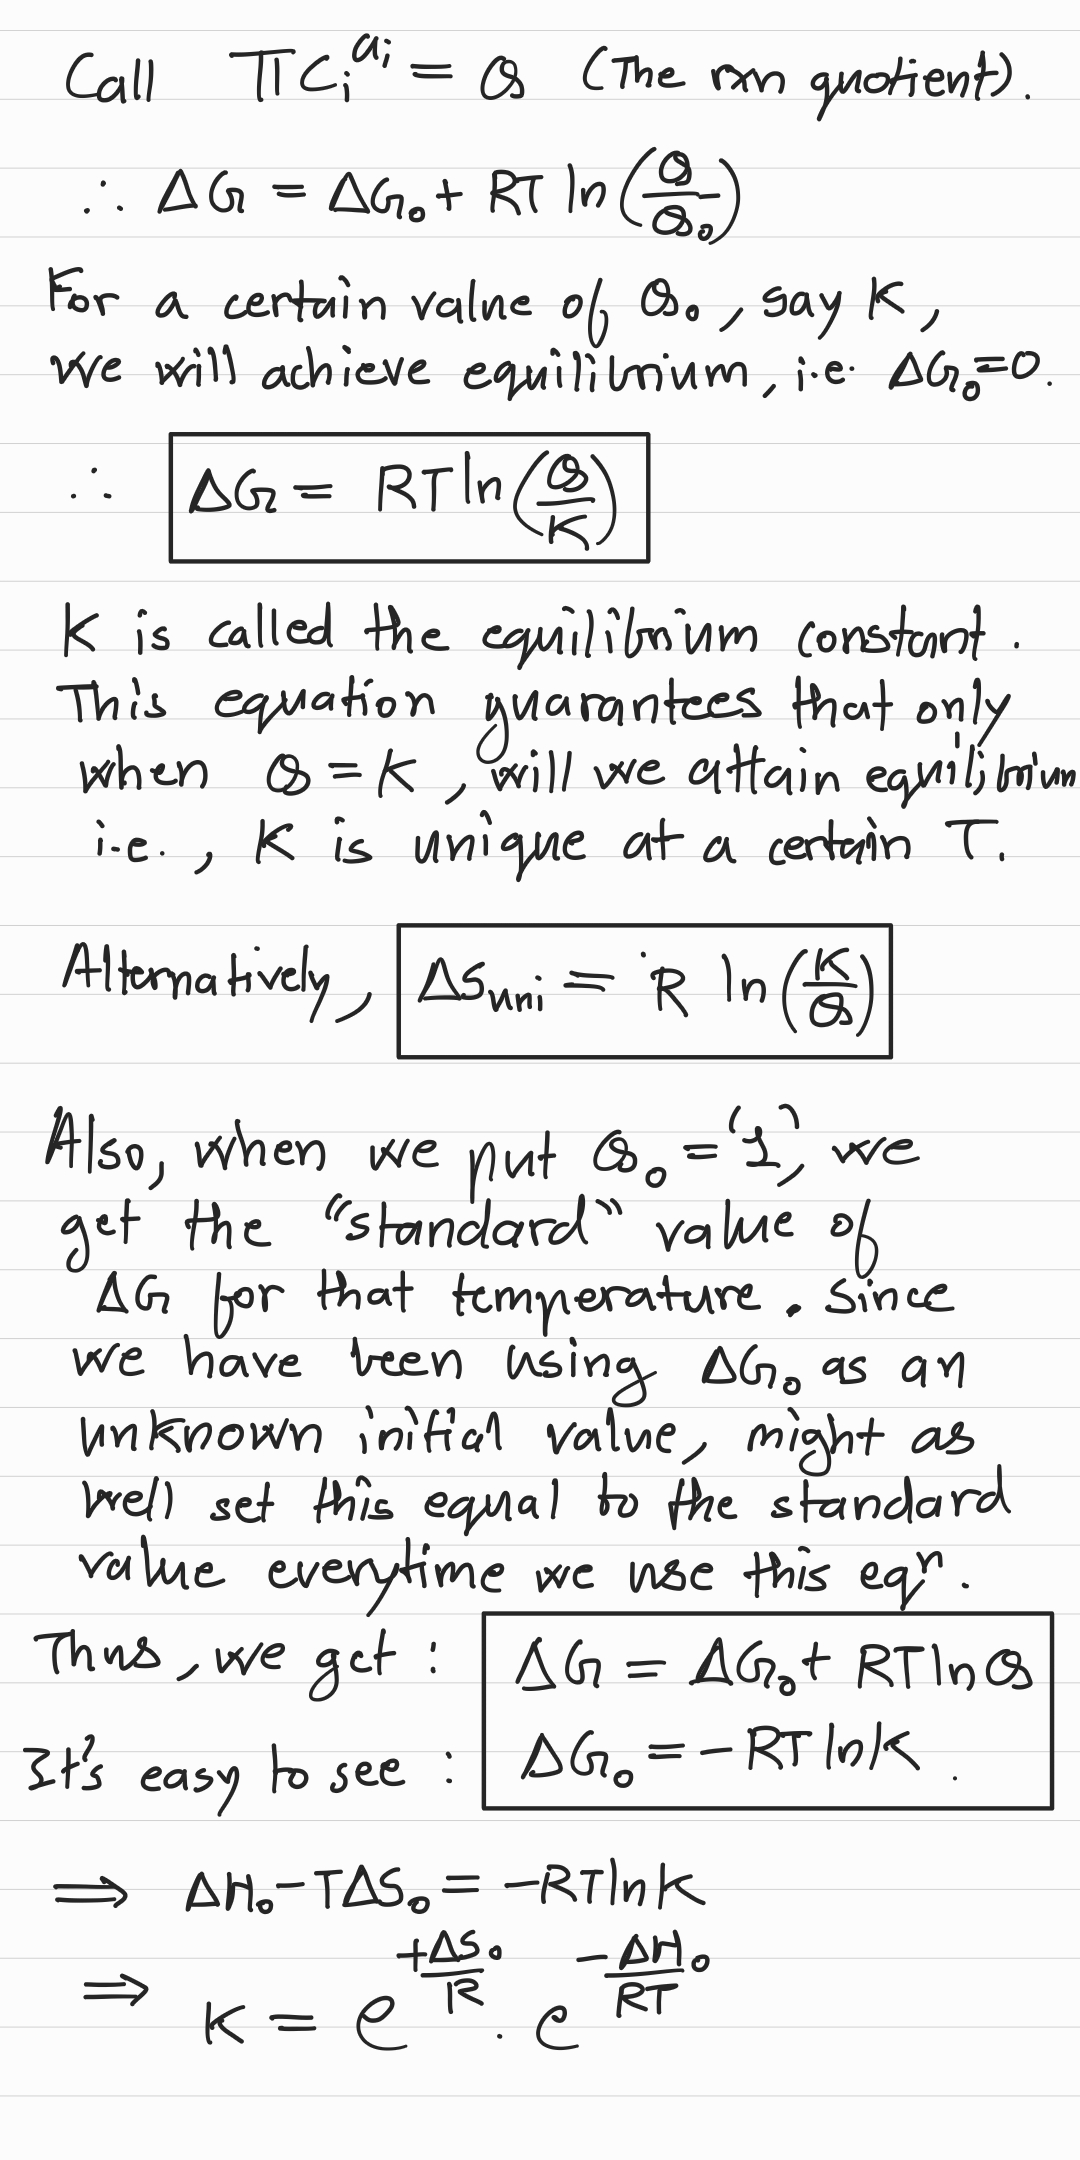 Call ΠCᵢ^aᵢ = Q (The rxn quotient).
∴ ΔG = ΔG₀ + RT ln(Q/Q₀)
For a certain value of Q₀, say K,
we will achieve equilibrium, i.e. ΔG₀=0.
∴ ΔG = RT ln(Q/K)
K is called the equilibrium constant.
This equation guarantees that only
when Q = K, will we attain equilibrium
i.e., K is unique at a certain T.
Alternatively, ΔSuni = R ln(K/Q)
Also, when we put Q₀ = '1', we
get the "standard" value of
ΔG for that temperature. Since
we have been using ΔG₀ as an
unknown initial value, might as
well set this equal to the standard
value everytime we use this eqⁿ.
Thus, we get: ΔG = ΔG₀ + RT ln Q
It's easy to see: ΔG₀ = -RT ln K.
⇒ ΔH₀ - TΔS₀ = -RT ln K
⇒ K = e^(+ΔS₀/R) . e^(-ΔH₀/RT)